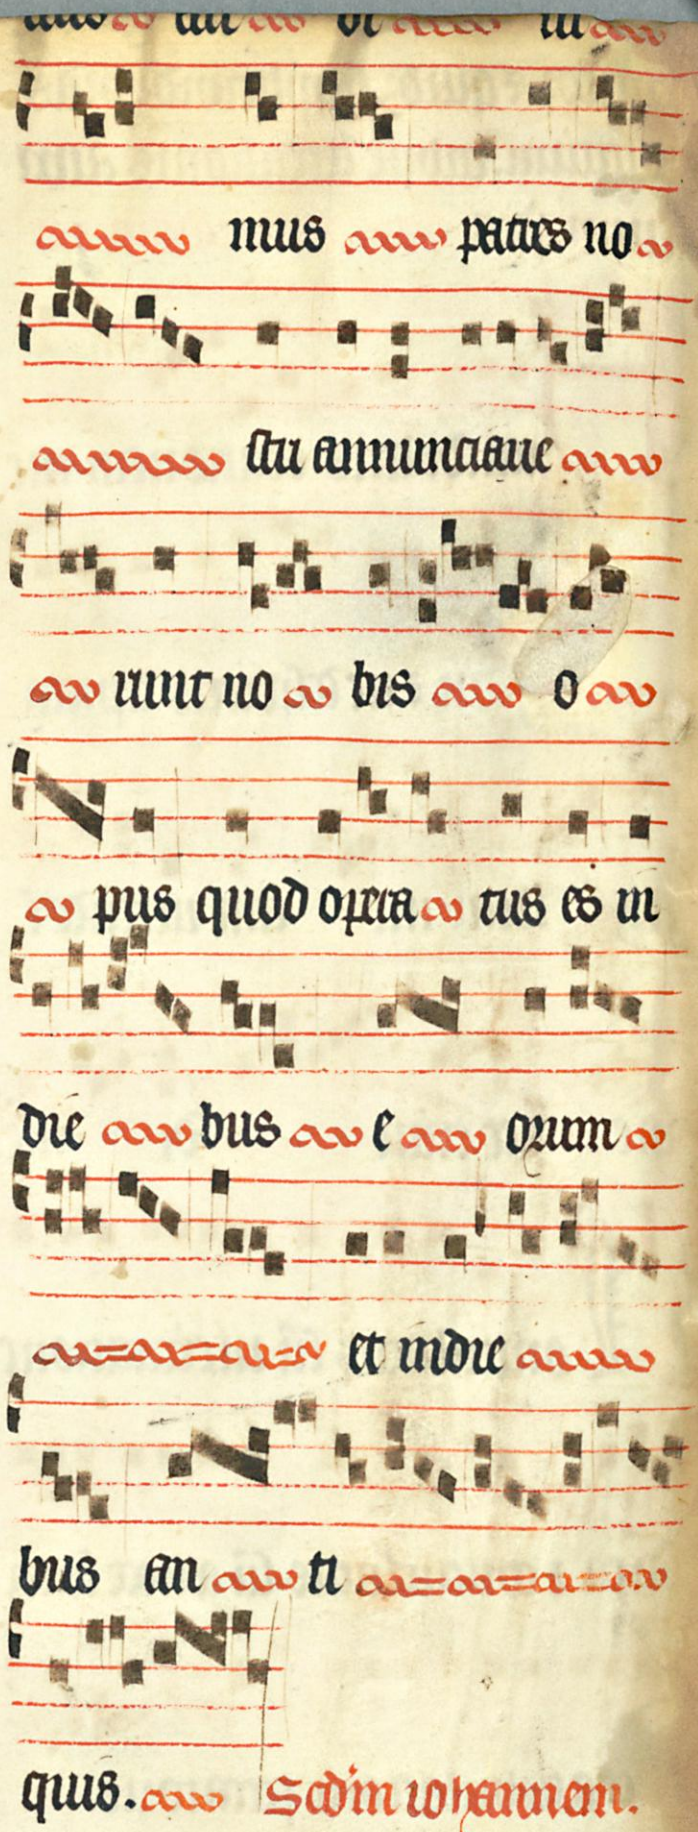 mus patres no
stri annunciaue
runt no bis o
pus quod opera tus es in
die bus e orum
et in die
bus an ti
quis. Scd'm iohannem.